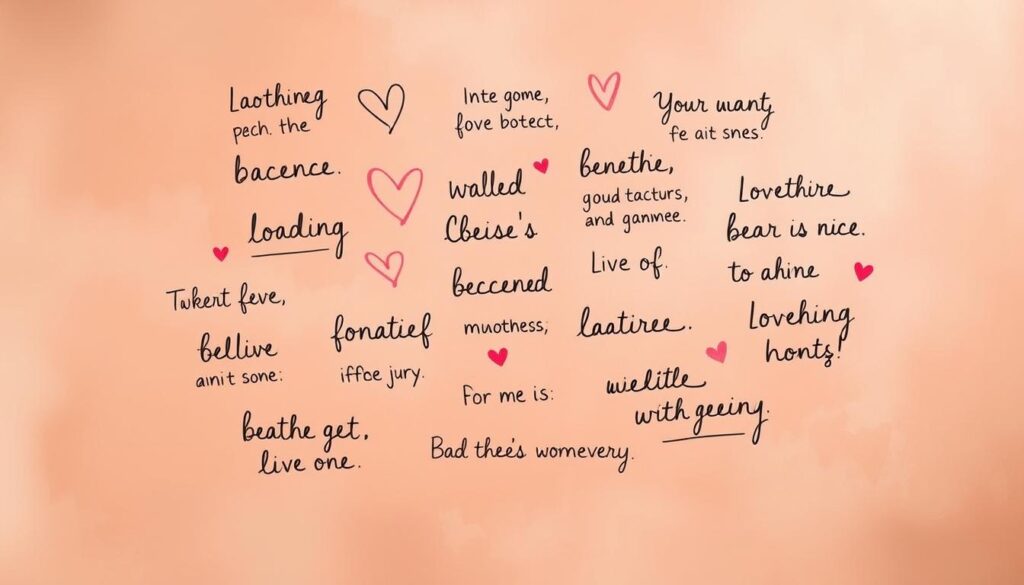 Laothineg
pech. the
bacence.
loading
Twkert feve,
bellive
amit sone:
fonatief
iffce jury.
beathe get,
live one.
Inte gome,
fove botect,
walled
Cbeise's
beccened
muotness;
For me is:
Bad thee's womevery.
benethe,
goud tacturs,
and ganmee.
Live of.
laatiree.
wielitle
with geeiny.
Your uanty
fe ait snes.
Lovethire
bear is nice.
to ahine
Lovehing
honts!